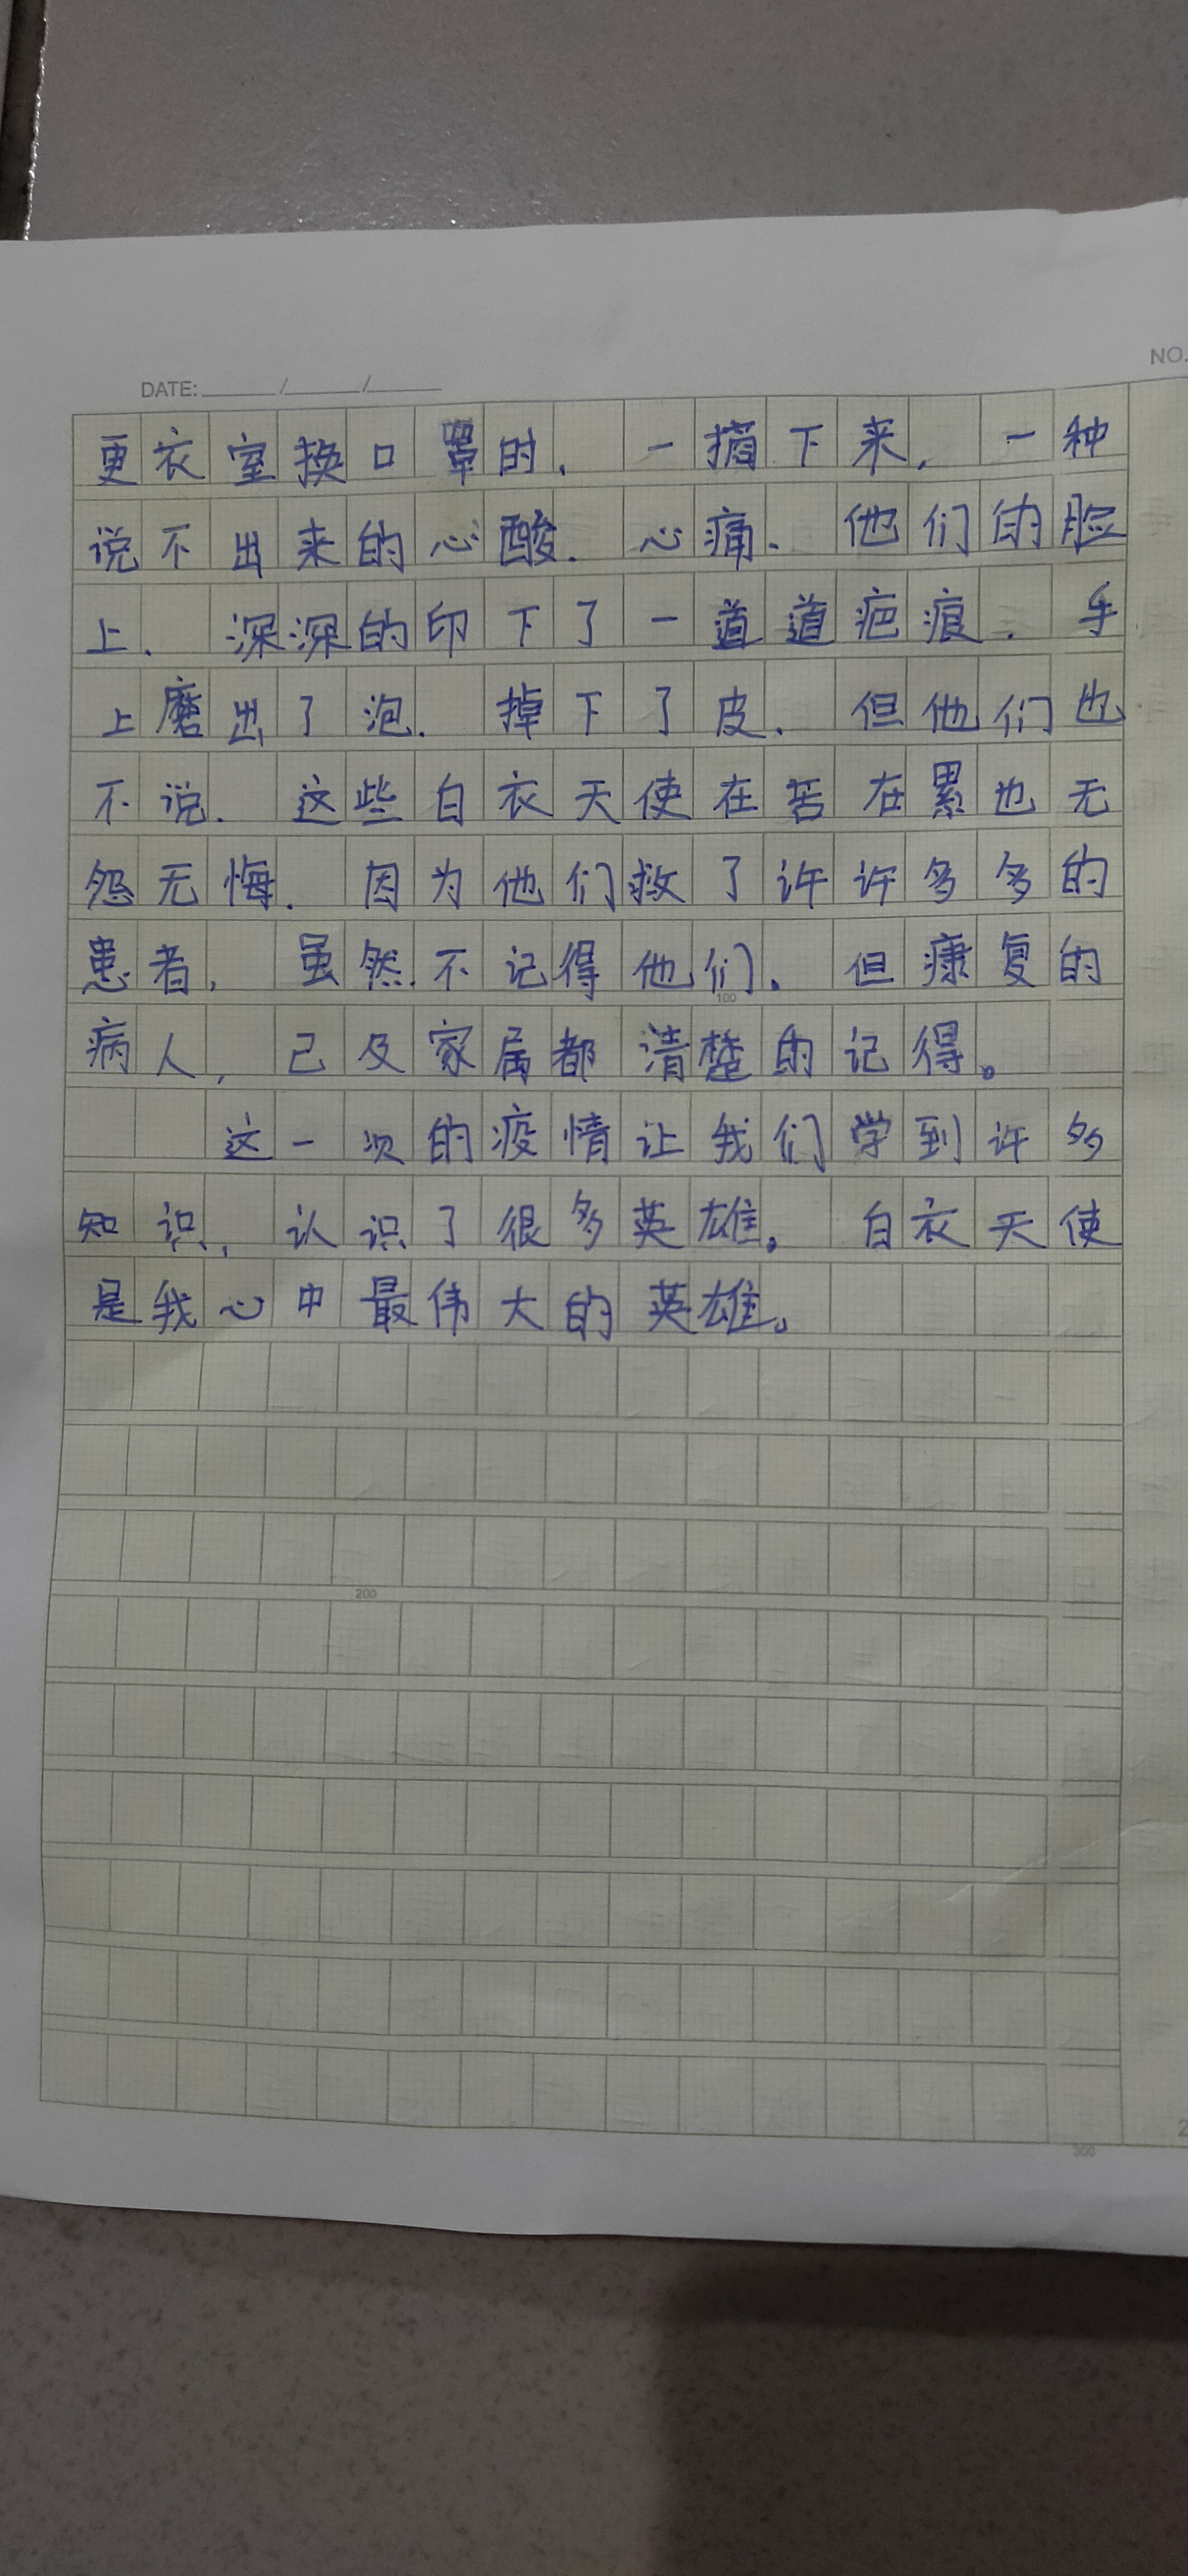 NO.
DATE: / /
更衣室换口罩的，一摘下来，一种
说不出来的心酸，心痛，他们的脸
上，深深的印下了一道道疤痕，手
上磨出了泡，掉下了皮，但他们也
不说，这些白衣天使在苦在累也无
怨无悔，因为他们救了许许多多的
患者，虽然不记得他们，但康复的
100
病人，己及家属都清楚的记得。
这一次的疫情让我们学到许多
知识，认识了很多英雄。白衣天使
是我心中最伟大的英雄。
200
300